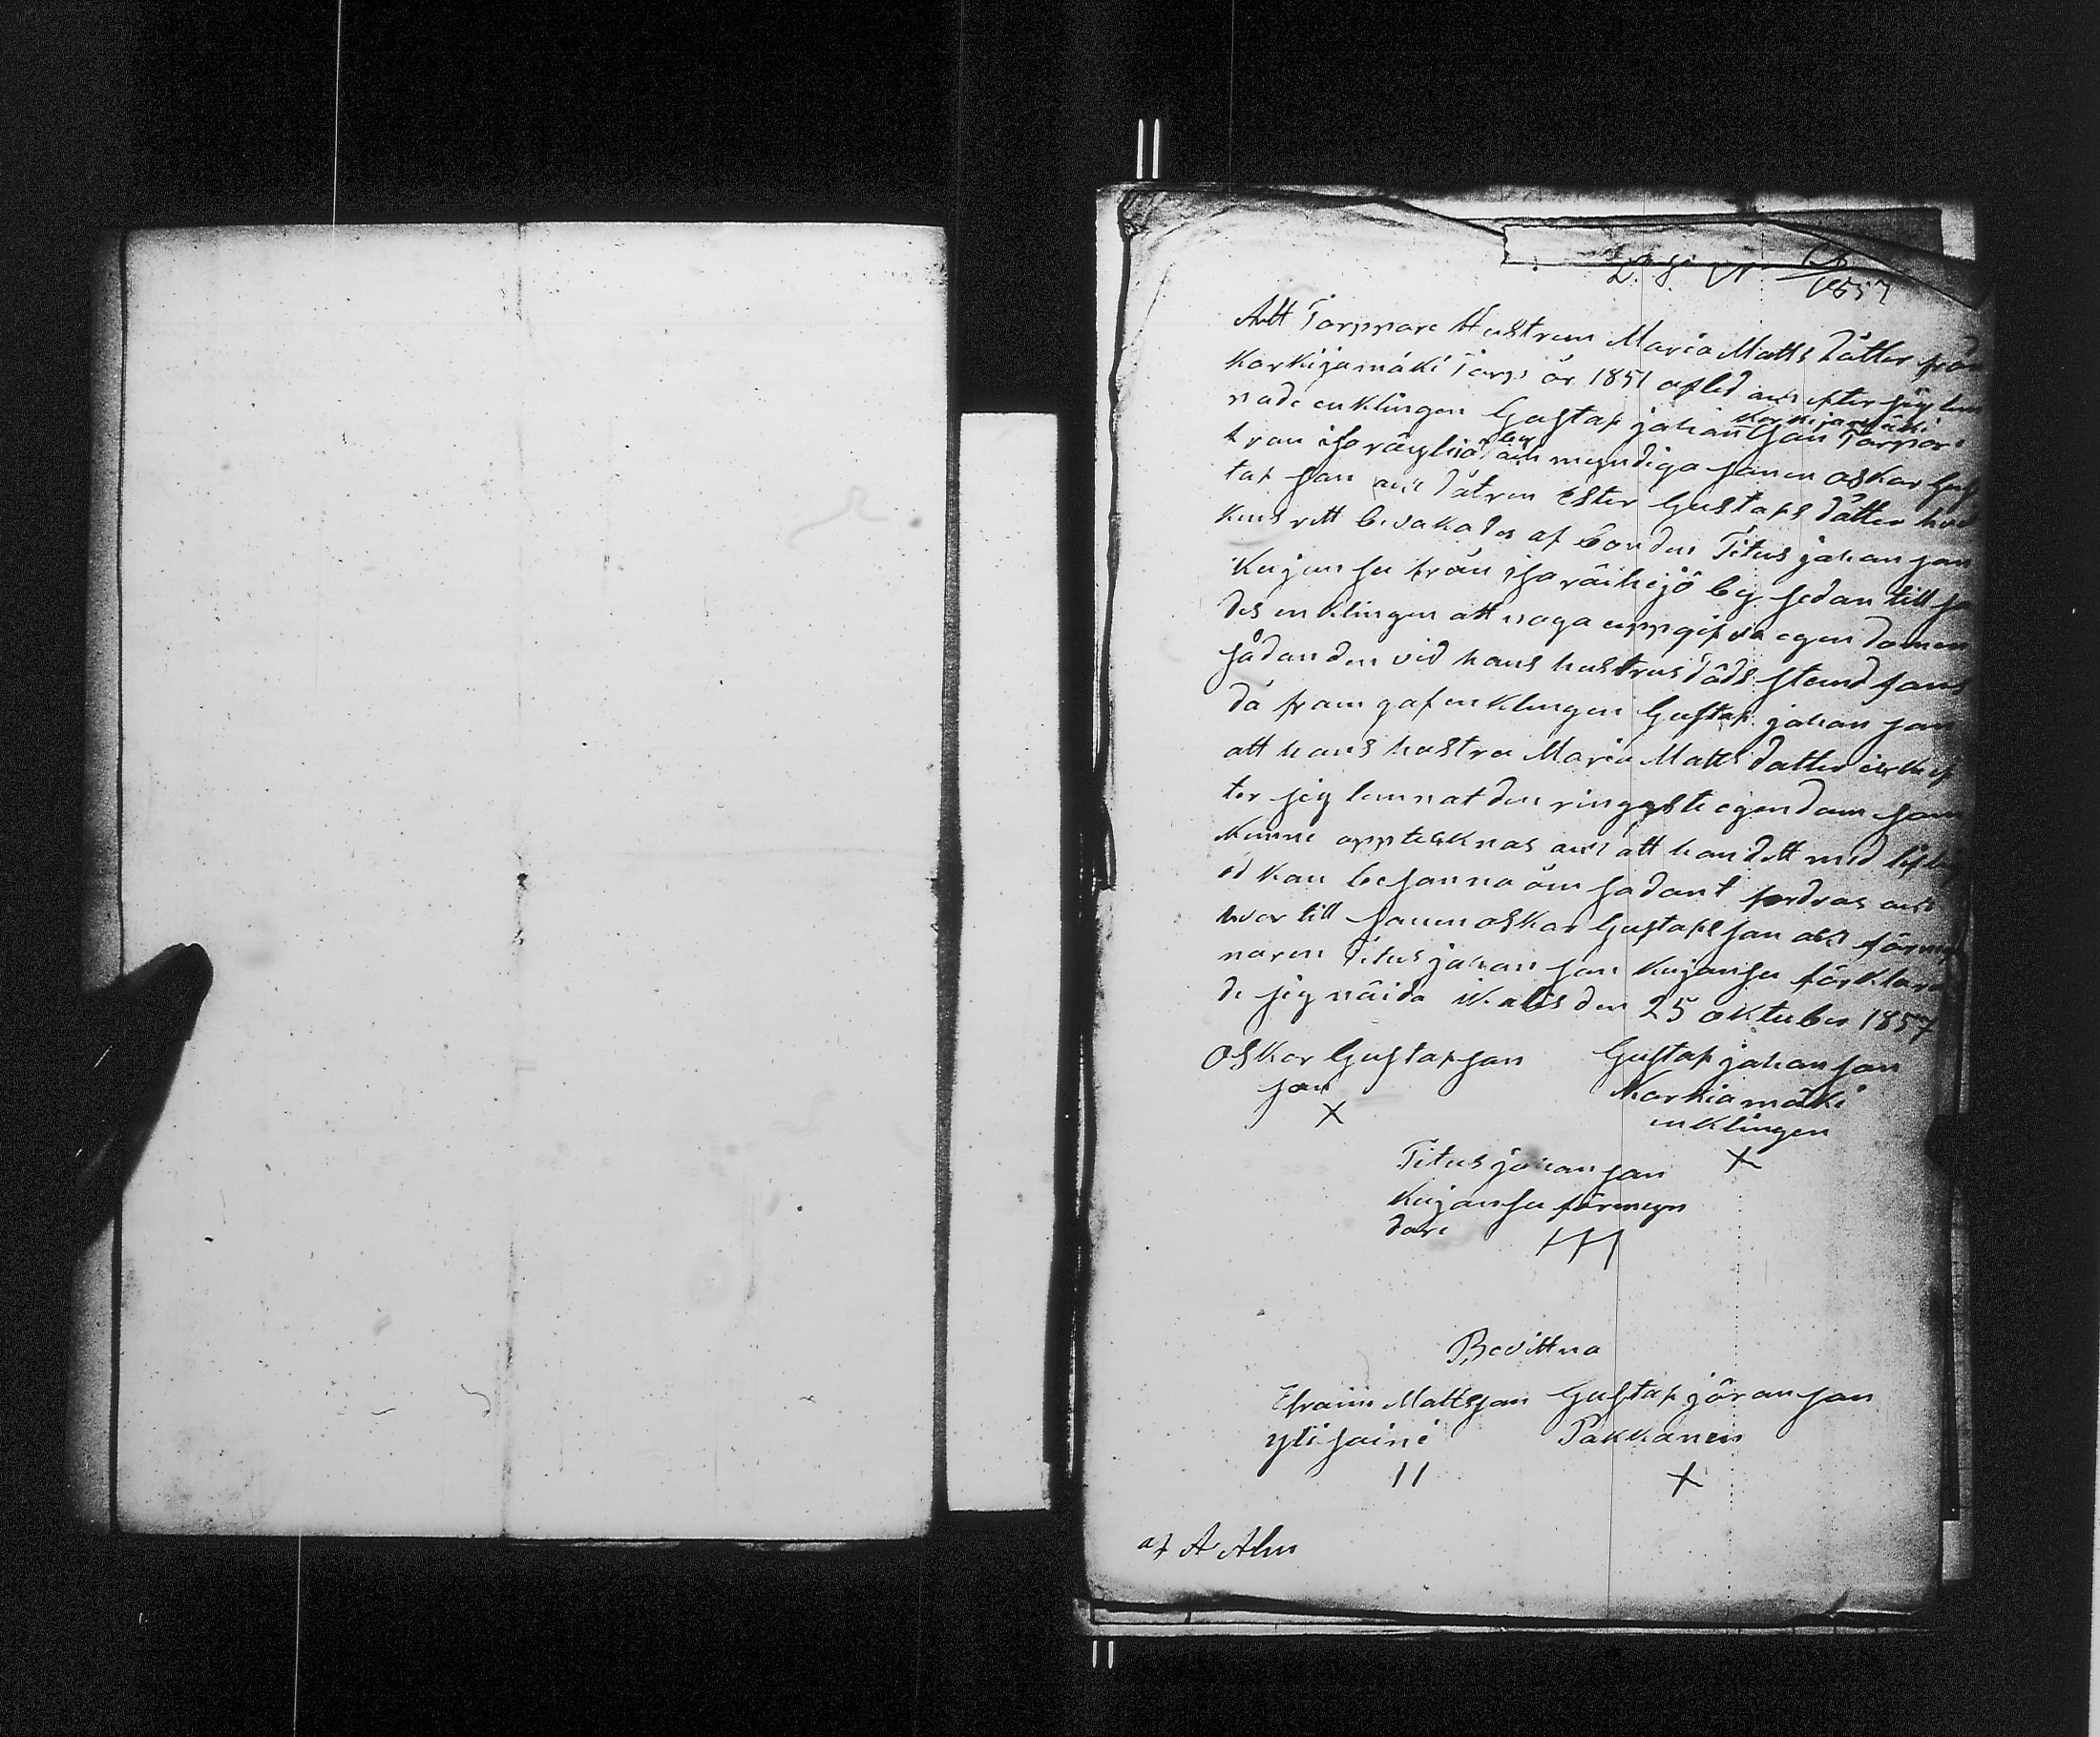 1857
Att Torppare Hustrun Maria Matts dätter från
Korkijamäki Torp år 1851 afled och efter sig lem
nade enklingen Gustaf johan son Torpare
Korkijamäki
från isoräyhiö by
och myndiga sonen Oskar Gus
taf son och dätren Ester Gustafs dätter hvil
kens rätt bevakades af bonden Titus johan son
Kujansu från isoräihijö by sedan till sa
des enklingen att noga uppgifva egendomen
sådan den vid hans hustrus döds stund fans
då fram gaf enklingen Gustaf johan son
att hans hustru Maria Matts datter icke ef
ter sig lemnat den ringgaste egendom som
kunne oppteknas och att han dett med liflig
ed kan besanna om sådant fordras och
hvar till sonen Oskar Gustafs son och förmyn
naren Titus johan son Kujansu förklara
de sig nöida Ikalis den 25 oktuber 1857
Oskar Gustaf son Gustaf johan son
son Korkiamäki
X enklingen
X
Titus johan son
Kujansu förmyn
dare
Bevittna
Efraim Mattsson Gustaf jöran son
yli saine Pakkanen
11 X
af A Alm